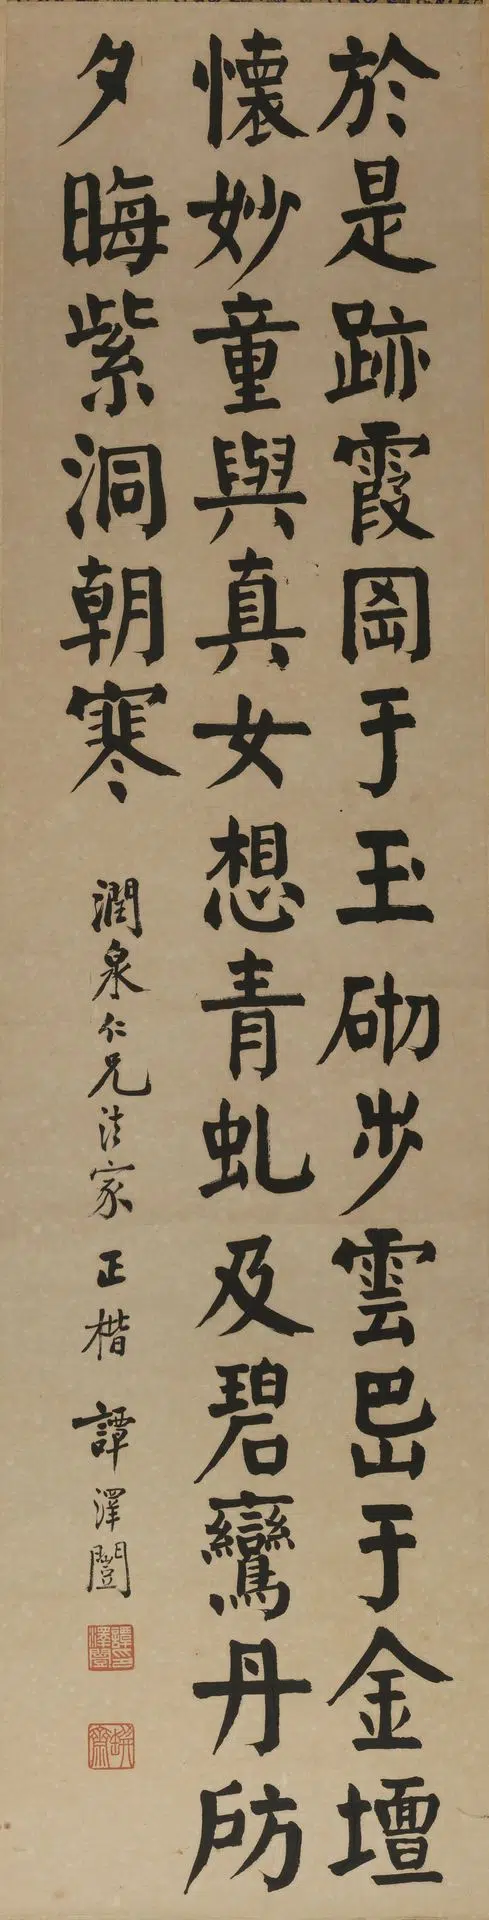 於是跡霞岡于玉砌步雲岊于金壇
懷妙童與真女想青虬及碧鸞丹房
夕晦紫洞朝寒
潤泉仁兄法家正楷 譚澤闓
譚印澤闓
瓶齋